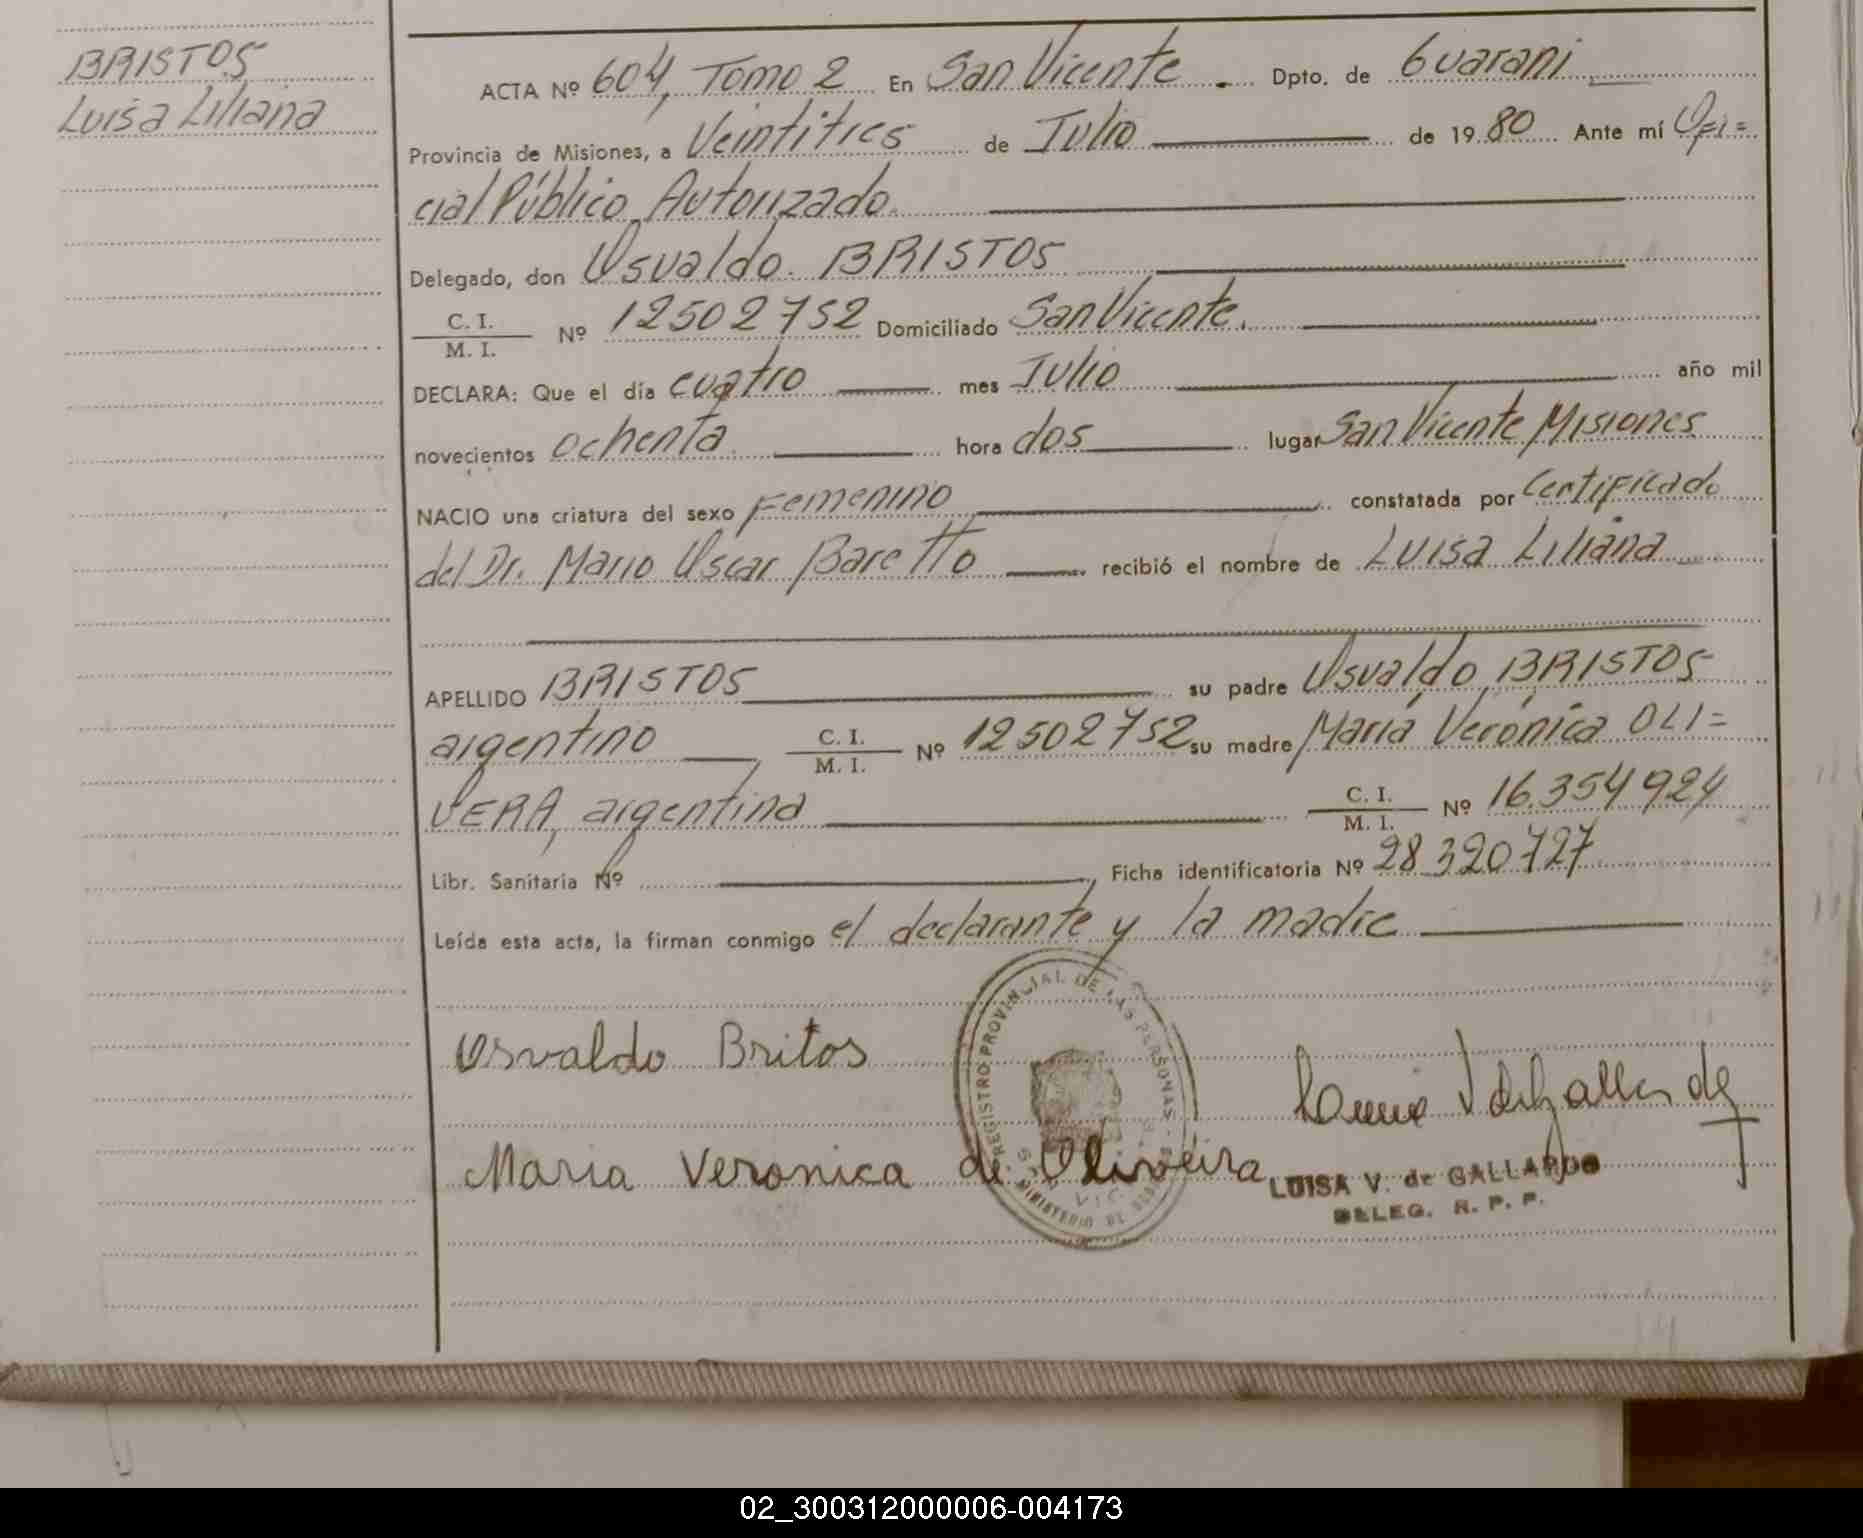 BRISTOS
Luisa Liliana
ACTA Nº 604, Tomo 2 En San Vicente. Dpto. de Guarani
Provincia de Misiones, a Veintitres de Julio de 1980 Ante mí Ofi=
cial Público Autorizado.
Delegado, don Osvaldo BRISTOS
C. I. / M. I. Nº 12502752 Domiciliado San Vicente.
DECLARA: Que el día cuatro mes Julio año mil
novecientos ochenta hora dos lugar San Vicente Misiones
NACIO una criatura del sexo Femenino constatada por Certificado
del Dr. Mario Oscar Baretto recibió el nombre de Luisa Liliana
APELLIDO BRISTOS su padre Osvaldo BRISTOS
argentino, C. I. / M. I. Nº 12502752 su madre María Verónica OLI=
VERA, argentina C. I. / M. I. Nº 16.354924
Libr. Sanitaria Nº Ficha identificatoria Nº 28320727
Leída esta acta, la firman conmigo el declarante y la madre
REGISTRO PROVINCIAL DE LAS PERSONAS
MINISTERIO DE
Osvaldo Britos
Maria Veronica de Oliveira
LUISA V. de GALLARDO
DELEG. R. P. P.
02_300312000006-004173